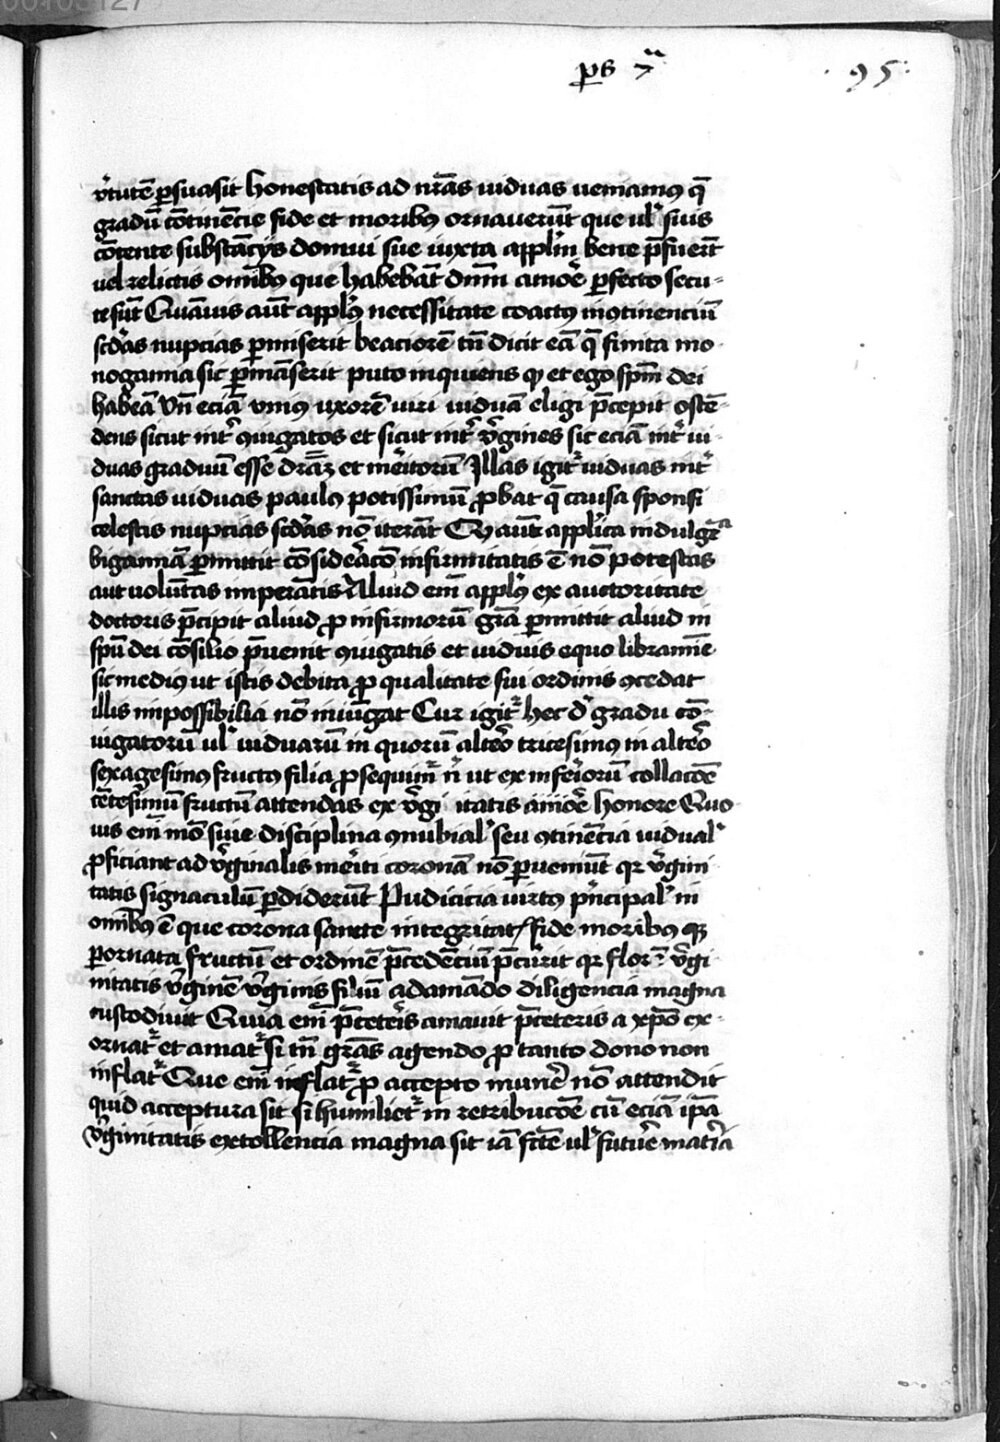 00103127
ps 7ᵃ
95
v̾tutē ꝑsuasit honestatis ad nr̄as viduas veniamꝰ q̄
gradū cōtinēcie fide et moribꝰ ornaverūt que ul̾ suis
cōtente substācijs domui sue iuxta appl̾m bene p̄fuerūt
vel relictis om̄ibꝰ que habebāt dn̄m amoē ꝑfecto secu-
te sūt Quāuis aūt appl̾s necessitate coactꝰ ꝯtinenciū
scd̾as nupcias ꝑmiserit beaciorē tn̄ dicit eā q̄ finita mo-
nogamia sic ꝑmāserit puto inquiens ꝙ et ego spm̄ dei
habeā Vn̄ eciā vniꝰ uxorē viri viduā eligi p̄cepit ostē-
dens sicut int̾ ꝯiugatos et sicut int̾ v̾gines sic eciā int̾ vi-
duas graduū esse dr̄aꝫ et me̾itorū Illas igit̾ viduas int̾
sanctas viduas paulꝰ potissimū ꝓbat q̄ causa sponsi
celestis nupcias scd̾as nō iterāt Cū aūt appl̾ica indulgēᵃ
bigamiā ꝑmittit cōside̾acō infirmitatis ē nō potestas
aut volūtas imperātis Aliud em̄ appl̾s ex auctoritate
doctoris p̄cipit aliud ꝓ infirmorū gr̄a ꝑmittit aliud in
spū dei cōsilio p̄uenit ꝯiugatis et viduis equo libramīe
sic mediꝰ ut istis debita ꝓ qualitate sui ordinis ꝯcedat
illis impossibilia nō iniūgat Cur igit̾ hec d̾ gradu cō-
iugatorū ul̾ viduarū in quorū alte̾o tricesimꝰ in alte̾o
sexagesimꝰ fructꝰ filia ꝓsequim̾ n̄ ut ex infe̾iorū collacōe
cētesimū fructum attendas ex v̾gi itatis amōe honore Quo-
uis em̄ mō suie disciplina ꝯnubial̾ seu ꝯtinēcia vidual̾
ꝓficiant ad v̾ginalis me̾iti coronā nō ꝑueniūt qr v̾gini-
tatis signaculū ꝑdiderūt Pudicicia virtꝰ p̾ncipal̾ in
om̄ibꝰ ē que corona sancte integritat̾ fide moribꝰ qꝫ
ꝑornata fructū et ordinē p̄cedēciū p̄currit qr flor̾ v̾gi-
nitatis v̾ginē v̾ginis filiū adamādo diligencia magna
custodiuit Quia em̄ p̄cete̾is amauit p̄ceteris a xp̄o ex-
ornat̾ et amat̾ si tn̄ gr̄as agendo ꝓ tanto dono non
inflat̾ Que em̄ inflat̾ ꝓ accepto mune̾ nō attendit
quid acceptura sit si humiliet̾ in retribucōe cū eciā ip̄a
v̾ginitatis extollencia magna sit iā ul̾ future mat̾ia